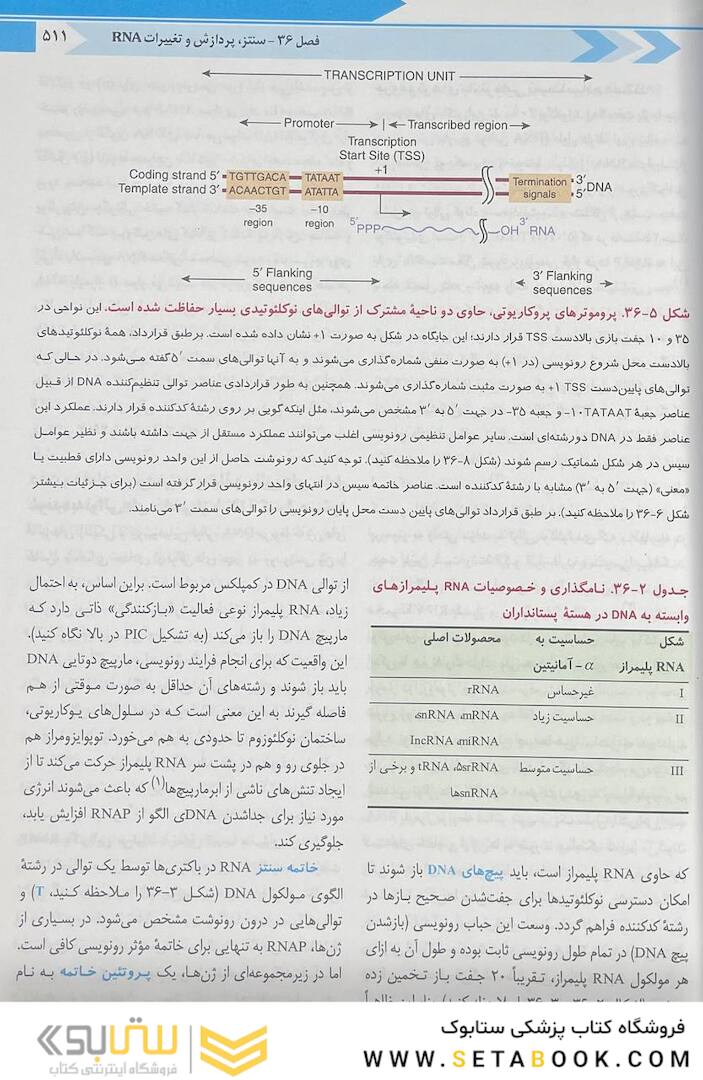 ۵۱۱
فصل ۳۶ - سنتز، پردازش و تغییرات RNA
TRANSCRIPTION UNIT
Promoter
Transcribed region
Transcription
Start Site (TSS)
+1
Coding strand 5′ TGTTGACA TATAAT Termination signals 3′ DNA
Template strand 3′ ACAACTGT ATATTA 5′
−35 region
−10 region
5′ PPP OH 3′ RNA
5′ Flanking sequences
3′ Flanking sequences
شکل ۵-۳۶. پروموترهای پروکاریوتی، حاوی دو ناحیهٔ مشترک از توالی‌های نوکلئوتیدی بسیار حفاظت شده است. این نواحی در
۳۵ و ۱۰ جفت بازی بالادست TSS قرار دارند؛ این جایگاه در شکل به صورت ۱+ نشان داده شده است. برطبق قرارداد، همهٔ نوکلئوتیدهای
بالادست محل شروع رونویسی (در ۱+) به صورت منفی شماره‌گذاری می‌شوند و به آنها توالی‌های سمت ′۵ گفته می‌شود. در حالی که
توالی‌های پایین‌دست TSS ۱+ به صورت مثبت شماره‌گذاری می‌شوند. همچنین به طور قراردادی عناصر توالی تنظیم‌کننده DNA از قبیل
عناصر جعبهٔ TATAAT ۱۰- و جعبه ۳۵- در جهت ′۵ به ′۳ مشخص می‌شوند، مثل اینکه گویی بر روی رشتهٔ کدکننده قرار دارند. عملکرد این
عناصر فقط در DNA دورشته‌ای است. سایر عوامل تنظیمی رونویسی اغلب می‌توانند عملکرد مستقل از جهت داشته باشند و نظیر عوامل
سیس در هر شکل شماتیک رسم شوند (شکل ۸-۳۶ را ملاحظه کنید). توجه کنید که رونوشت حاصل از این واحد رونویسی دارای قطبیت یا
«معنی» (جهت ′۵ به ′۳) مشابه با رشتهٔ کدکننده است. عناصر خاتمه سیس در انتهای واحد رونویسی قرار گرفته است (برای جزئیات بیشتر
شکل ۶-۳۶ را ملاحظه کنید). بر طبق قرارداد توالی‌های پایین دست محل پایان رونویسی را توالی‌های سمت ′۳ می‌نامند.
جدول ۲-۳۶. نامگذاری و خصوصیات RNA پلیمرازهای
وابسته به DNA در هستهٔ پستانداران
شکل حساسیت به محصولات اصلی
RNA پلیمراز α - آمانیتین
I غیرحساس rRNA
II حساسیت زیاد mRNA، snRNA،
miRNA، lncRNA
III حساسیت متوسط tRNA، 5srRNA و برخی از
snRNAها
که حاوی RNA پلیمراز است، باید پیچ‌های DNA باز شوند تا
امکان دسترسی نوکلئوتیدها برای جفت‌شدن صحیح بازها در
رشتهٔ کدکننده فراهم گردد. وسعت این حباب رونویسی (بازشدن
پیچ DNA) در تمام طول رونویسی ثابت بوده و طول آن به ازای
هر مولکول RNA پلیمراز، تقریباً ۲۰ جفت باز تخمین زده
از توالی DNA در کمپلکس مربوط است. براین اساس، به احتمال
زیاد، RNA پلیمراز نوعی فعالیت «بازکنندگی» ذاتی دارد که
مارپیچ DNA را باز می‌کند (به تشکیل PIC در بالا نگاه کنید).
این واقعیت که برای انجام فرایند رونویسی، مارپیچ دوتایی DNA
باید باز شوند و رشته‌های آن حداقل به صورت موقتی از هم
فاصله گیرند به این معنی است که در سلول‌های یوکاریوتی،
ساختمان نوکلئوزوم تا حدودی به هم می‌خورد. توپوایزومراز هم
در جلوی رو و هم در پشت سر RNA پلیمراز حرکت می‌کند تا از
ایجاد تنش‌های ناشی از ابرمارپیچ‌ها(۱) که باعث می‌شوند انرژی
مورد نیاز برای جداشدن DNAی الگو از RNAP افزایش یابد،
جلوگیری کند.
خاتمه سنتز RNA در باکتری‌ها توسط یک توالی در رشتهٔ
الگوی مولکول DNA (شکل ۳-۳۶ را ملاحظه کنید، T) و
توالی‌هایی در درون رونوشت مشخص می‌شود. در بسیاری از
ژن‌ها، RNAP به تنهایی برای خاتمهٔ مؤثر رونویسی کافی است.
اما در زیرمجموعه‌ای از ژن‌ها، یک پروتئین خاتمه به نام
ستابوک
فروشگاه اینترنتی کتاب
فروشگاه کتاب پزشکی ستابوک
WWW.SETABOOK.COM